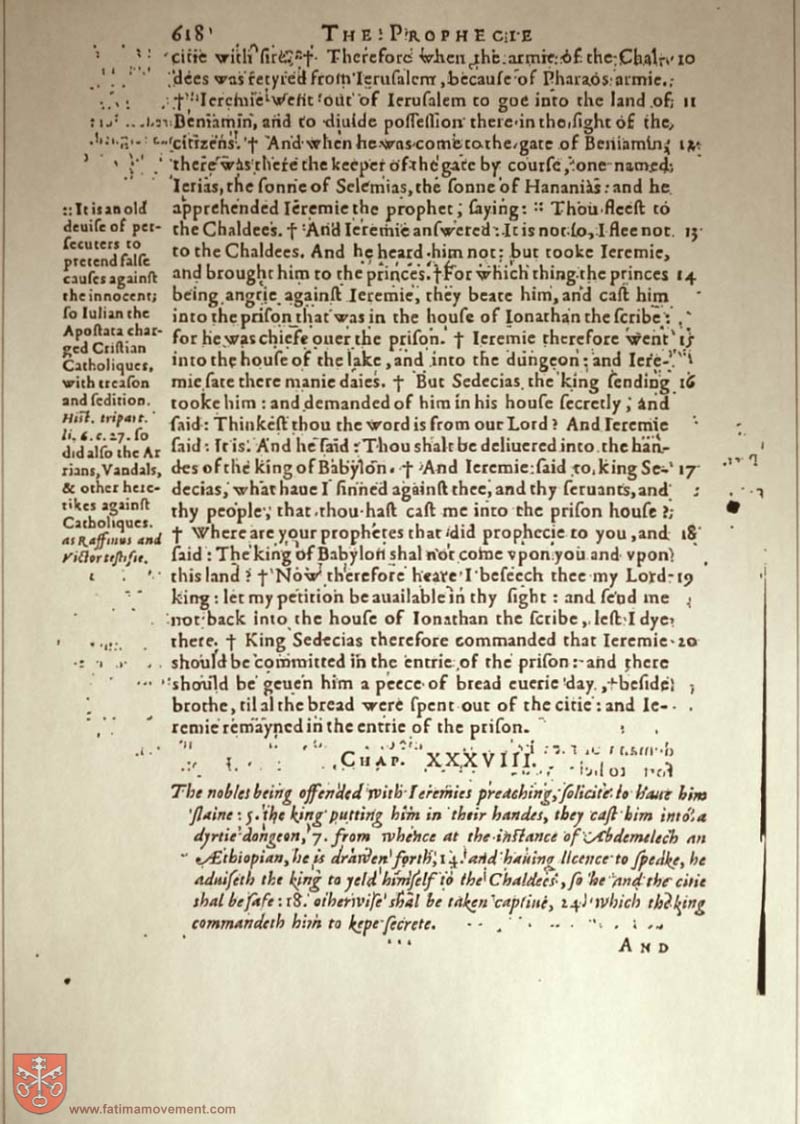 618
THE PROPHECIE
citie with fire. † Therefore when the armie of the Chal- 10
dees was retyred from Ierusalem, because of Pharaos armie.
† Ieremie went out of Ierusalem to goe into the land of 11
Beniamin, and to diuide possession there in the sight of the
citizens. † And when he was come to the gate of Beniamin, 12
there was there the keeper of the gate by course, one named
Ierias, the sonne of Selemias, the sonne of Hananias: and he
apprehended Ieremie the prophet, saying: :: Thou fleest to
the Chaldees. † And Ieremie answered: It is not so, I flee not 13
to the Chaldees. And he heard him not: but tooke Ieremie,
and brought him to the princes. † For which thing the princes 14
being angrie against Ieremie, they beate him, and cast him
into the prison that was in the house of Ionathan the scribe:
for he was chiefe ouer the prison. † Ieremie therefore went 15
into the house of the lake, and into the dungeon: and Iere-
mie sate there manie daies. † But Sedecias the king sending 16
tooke him: and demanded of him in his house secretly, and
said: Thinkest thou the word is from our Lord? And Ieremie
said: It is. And he said: Thou shalt be deliuered into the han-
des of the king of Babylon. † And Ieremie said to king Se- 17
decias, what haue I sinned against thee, and thy seruants, and
thy people, that thou hast cast me into the prison house?
† Where are your prophetes that did prophecie to you, and 18
said: The king of Babylon shal not come vpon you and vpon
this land? † Now therefore heare I beseech thee my Lord 19
king: let my petition be auailable in thy sight: and send me
not back into the house of Ionathan the scribe, lest I dye
there. † King Sedecias therefore commanded that Ieremie 20
should be committed in the entrie of the prison: and there
should be geuen him a peece of bread euerie day, beside
brothe, til al the bread were spent out of the citie: and Ie-
remie remayned in the entrie of the prison.
:: It is an old
deuise of per-
secuters to
pretend false
causes against
the innocent;
so Iulian the
Apostata char-
ged Cristian
Catholiques,
with treason
and sedition.
Hist. tripart.
li. 6. c. 27. so
did also the Ar
rians, Vandals,
& other here-
tikes against
Catholiques.
as Raffinus and
Victor testifie.
CHAP. XXXVIII.
The nobles being offended with Ieremies preaching, solicite to haue him
slaine: 5. the king putting him in their handes, they cast him into a
dyrtie dongeon, 7. from whence at the instance of Abdemelech an
Æthiopian, he is drawen forth, 14. and hauing licence to speake, he
aduiseth the king to yeld himself to the Chaldees, so he and the citie
shal be safe: 18. otherwise shal be taken captiue, 24. which the king
commandeth him to kepe secrete.
AND
www.fatimamovement.com